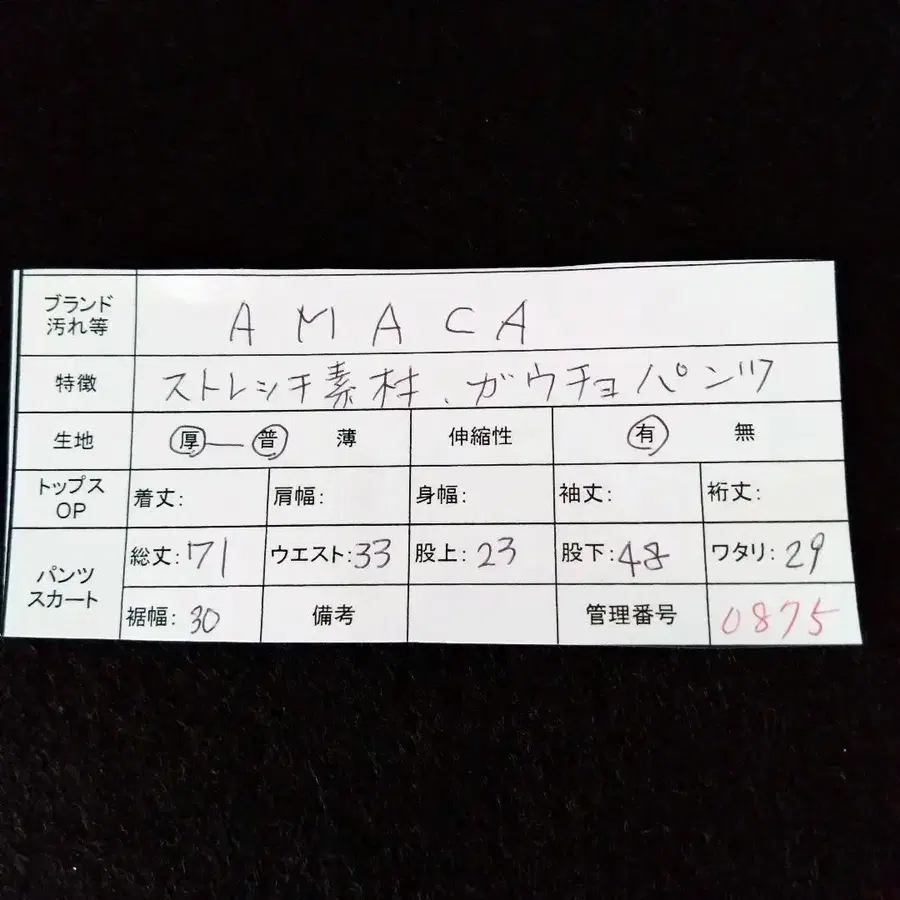 ブランド
汚れ等
AMACA
特徴
ストレッチ素材、ガウチョパンツ
生地
厚—普 薄
伸縮性
有 無
トップス
OP
着丈:
肩幅:
身幅:
袖丈:
裄丈:
パンツ
スカート
総丈:71
ウエスト:33
股上:23
股下:48
ワタリ:29
裾幅:30
備考
管理番号
0875